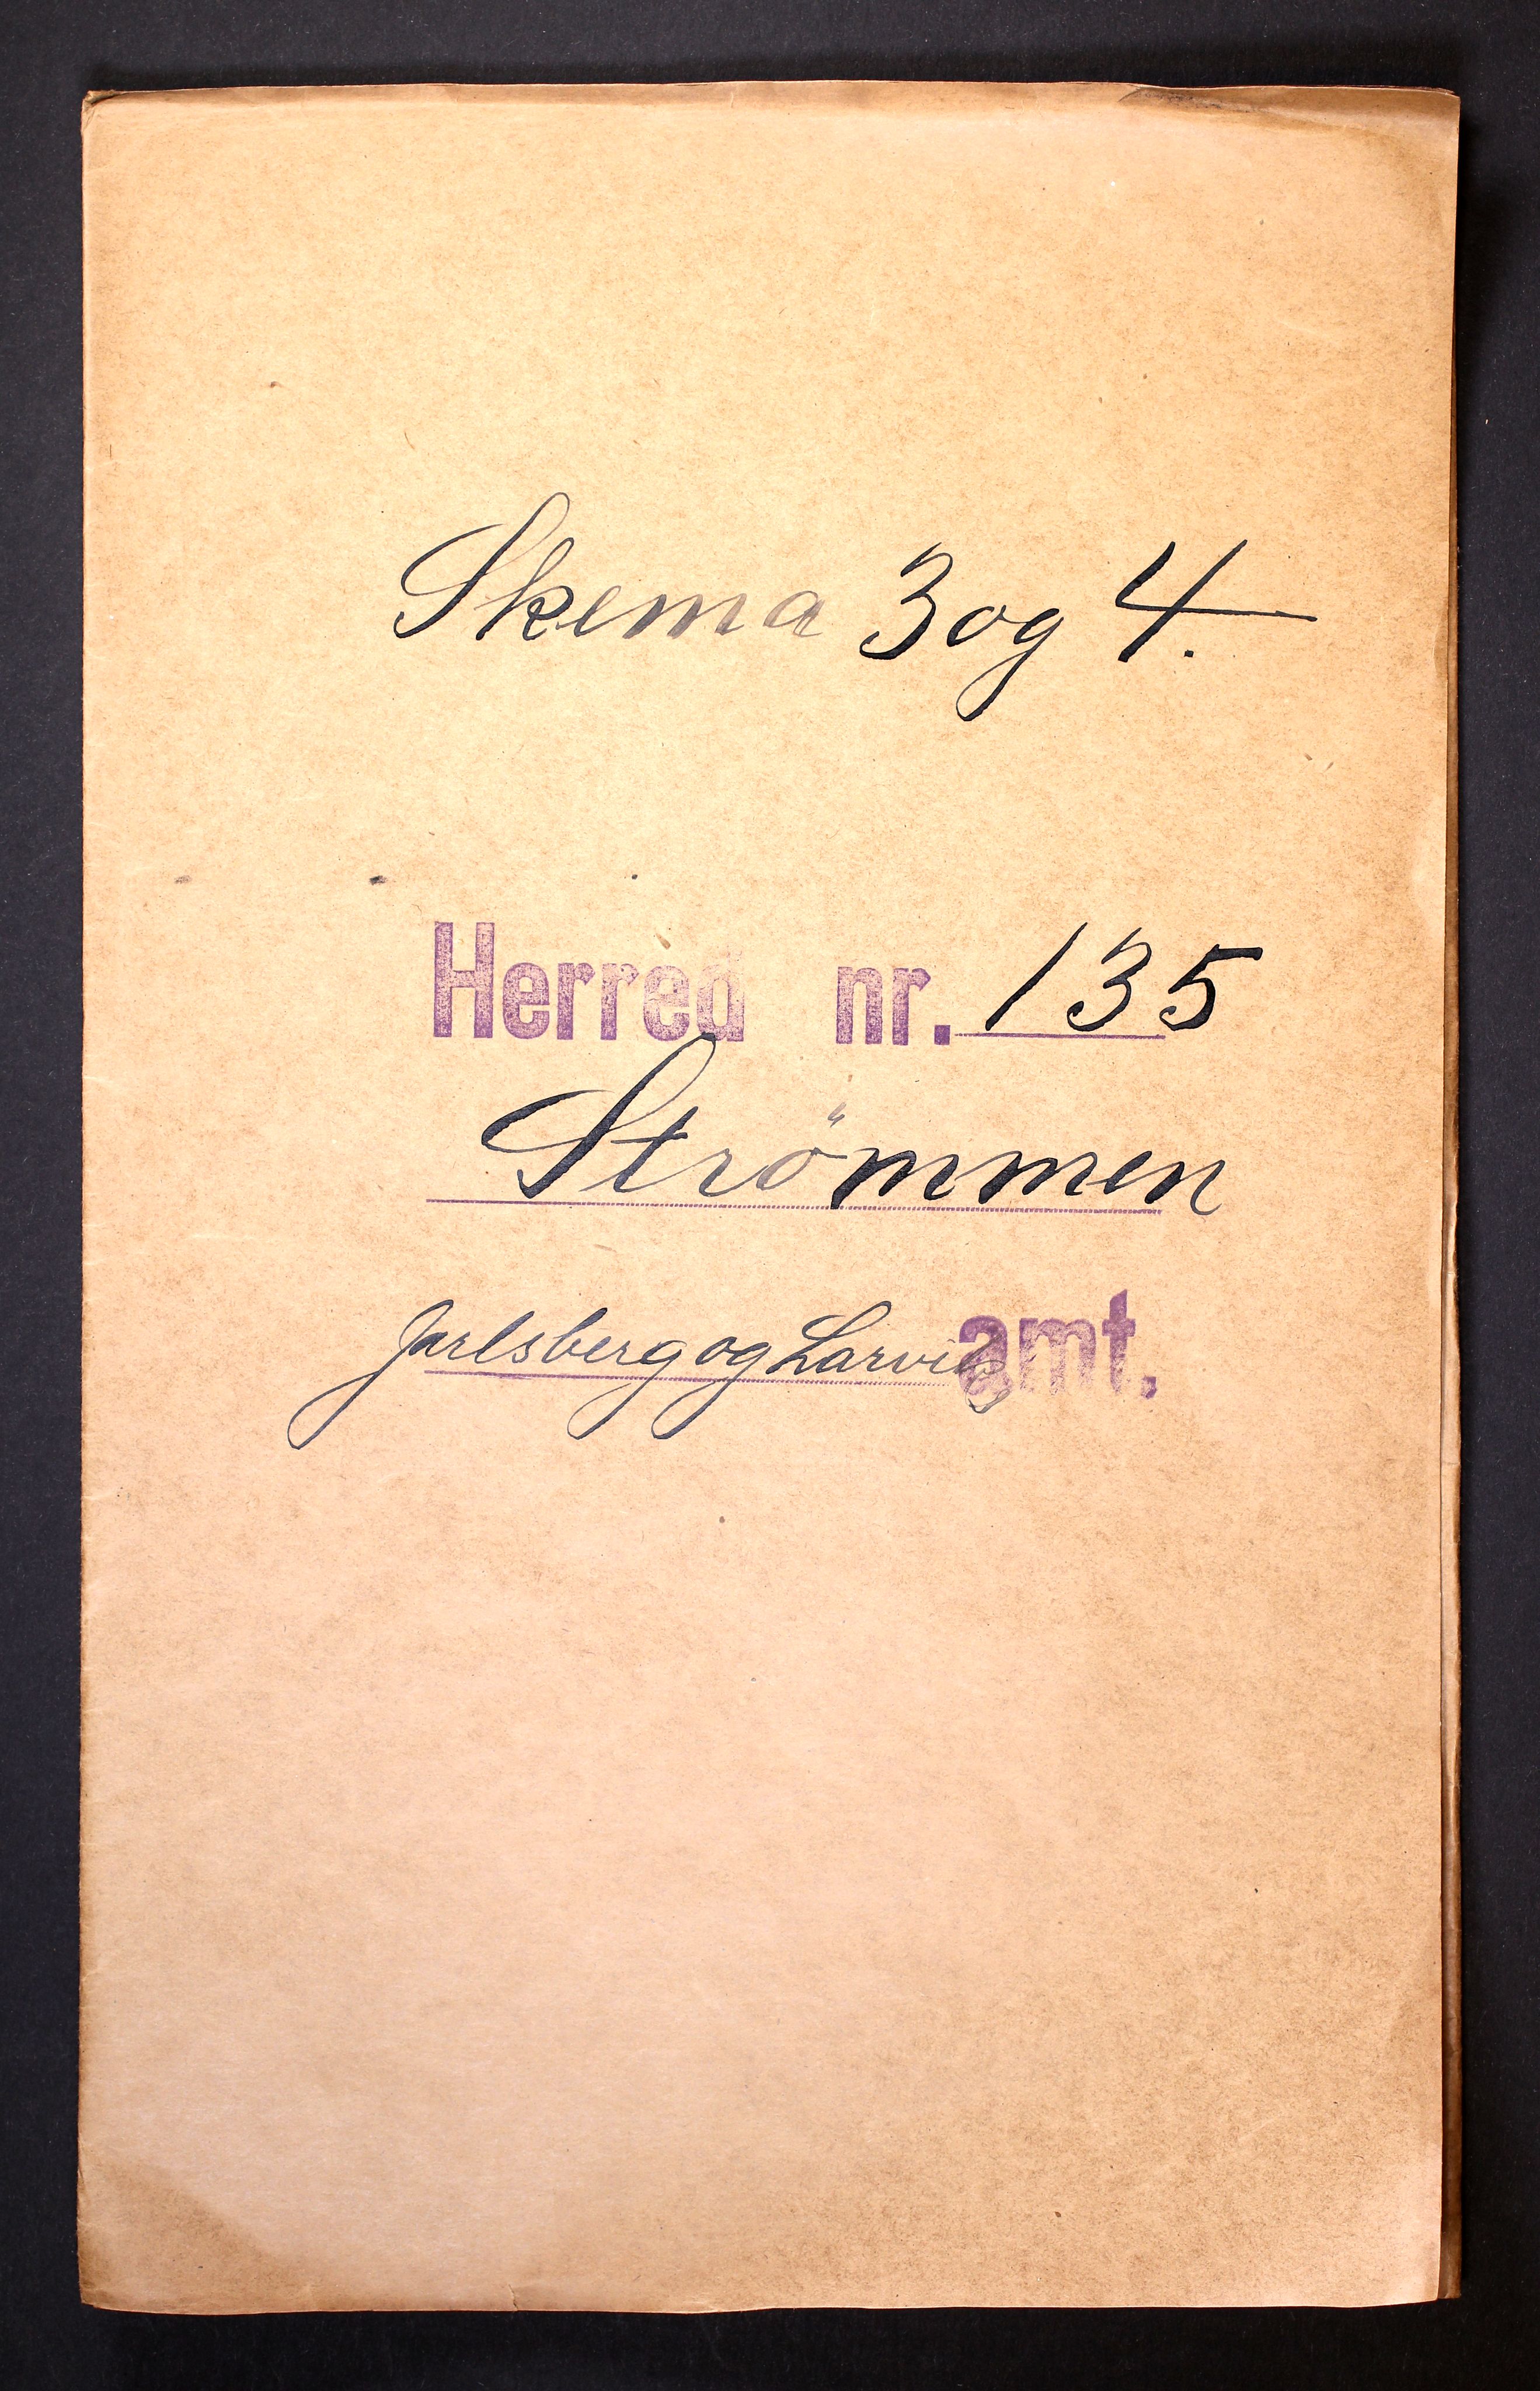 Skema 3 og 4.
Herred nr. 135
Strömmen
Jarlsberg og Larviks amt.